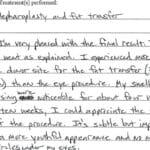 Treatment(s) performed:
blepharoplasty and fat transfer
I'm very pleased with the final result.
went as explained. I experienced more
donor site for the fat transfer (
than the eye procedure. My swell
noticeable for about four
I could appreciate the
of the procedure. It's subtle but imp
a more youthful appearance and no m
circles under my eyes.